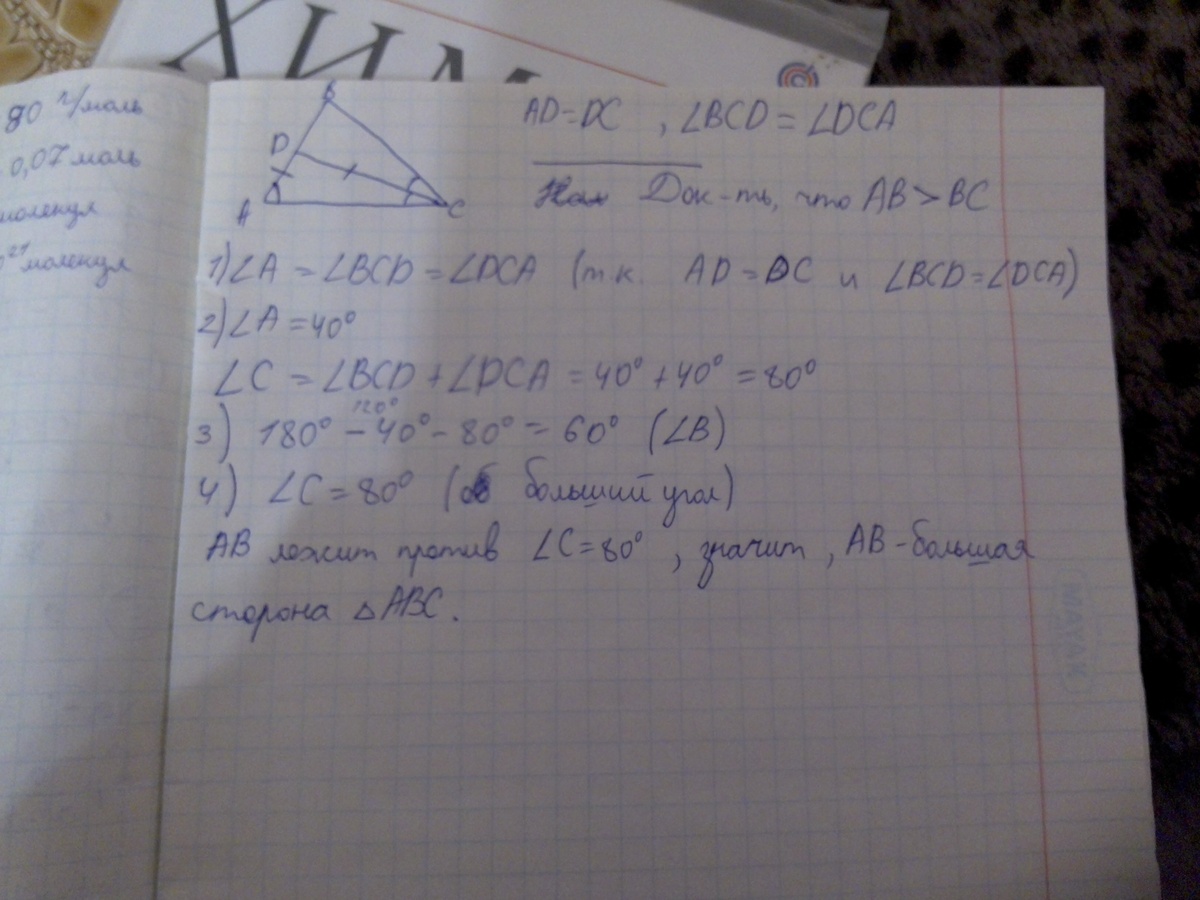 ХИМ
90 г/моль
0,07 моль
молекул
молекул
B
D
A
C
AD=DC , ∠BCD = ∠DCA
Док-ть, что AB > BC
1) ∠A = ∠BCD = ∠DCA (т.к. AD = DC и ∠BCD = ∠DCA)
2) ∠A = 40°
∠C = ∠BCD + ∠DCA = 40° + 40° = 80°
120°
3) 180° - 40° - 80° = 60° (∠B)
4) ∠C = 80° (больший угол)
AB лежит против ∠C = 80° , значит , AB - большая
сторона △ABC.
MAYAK